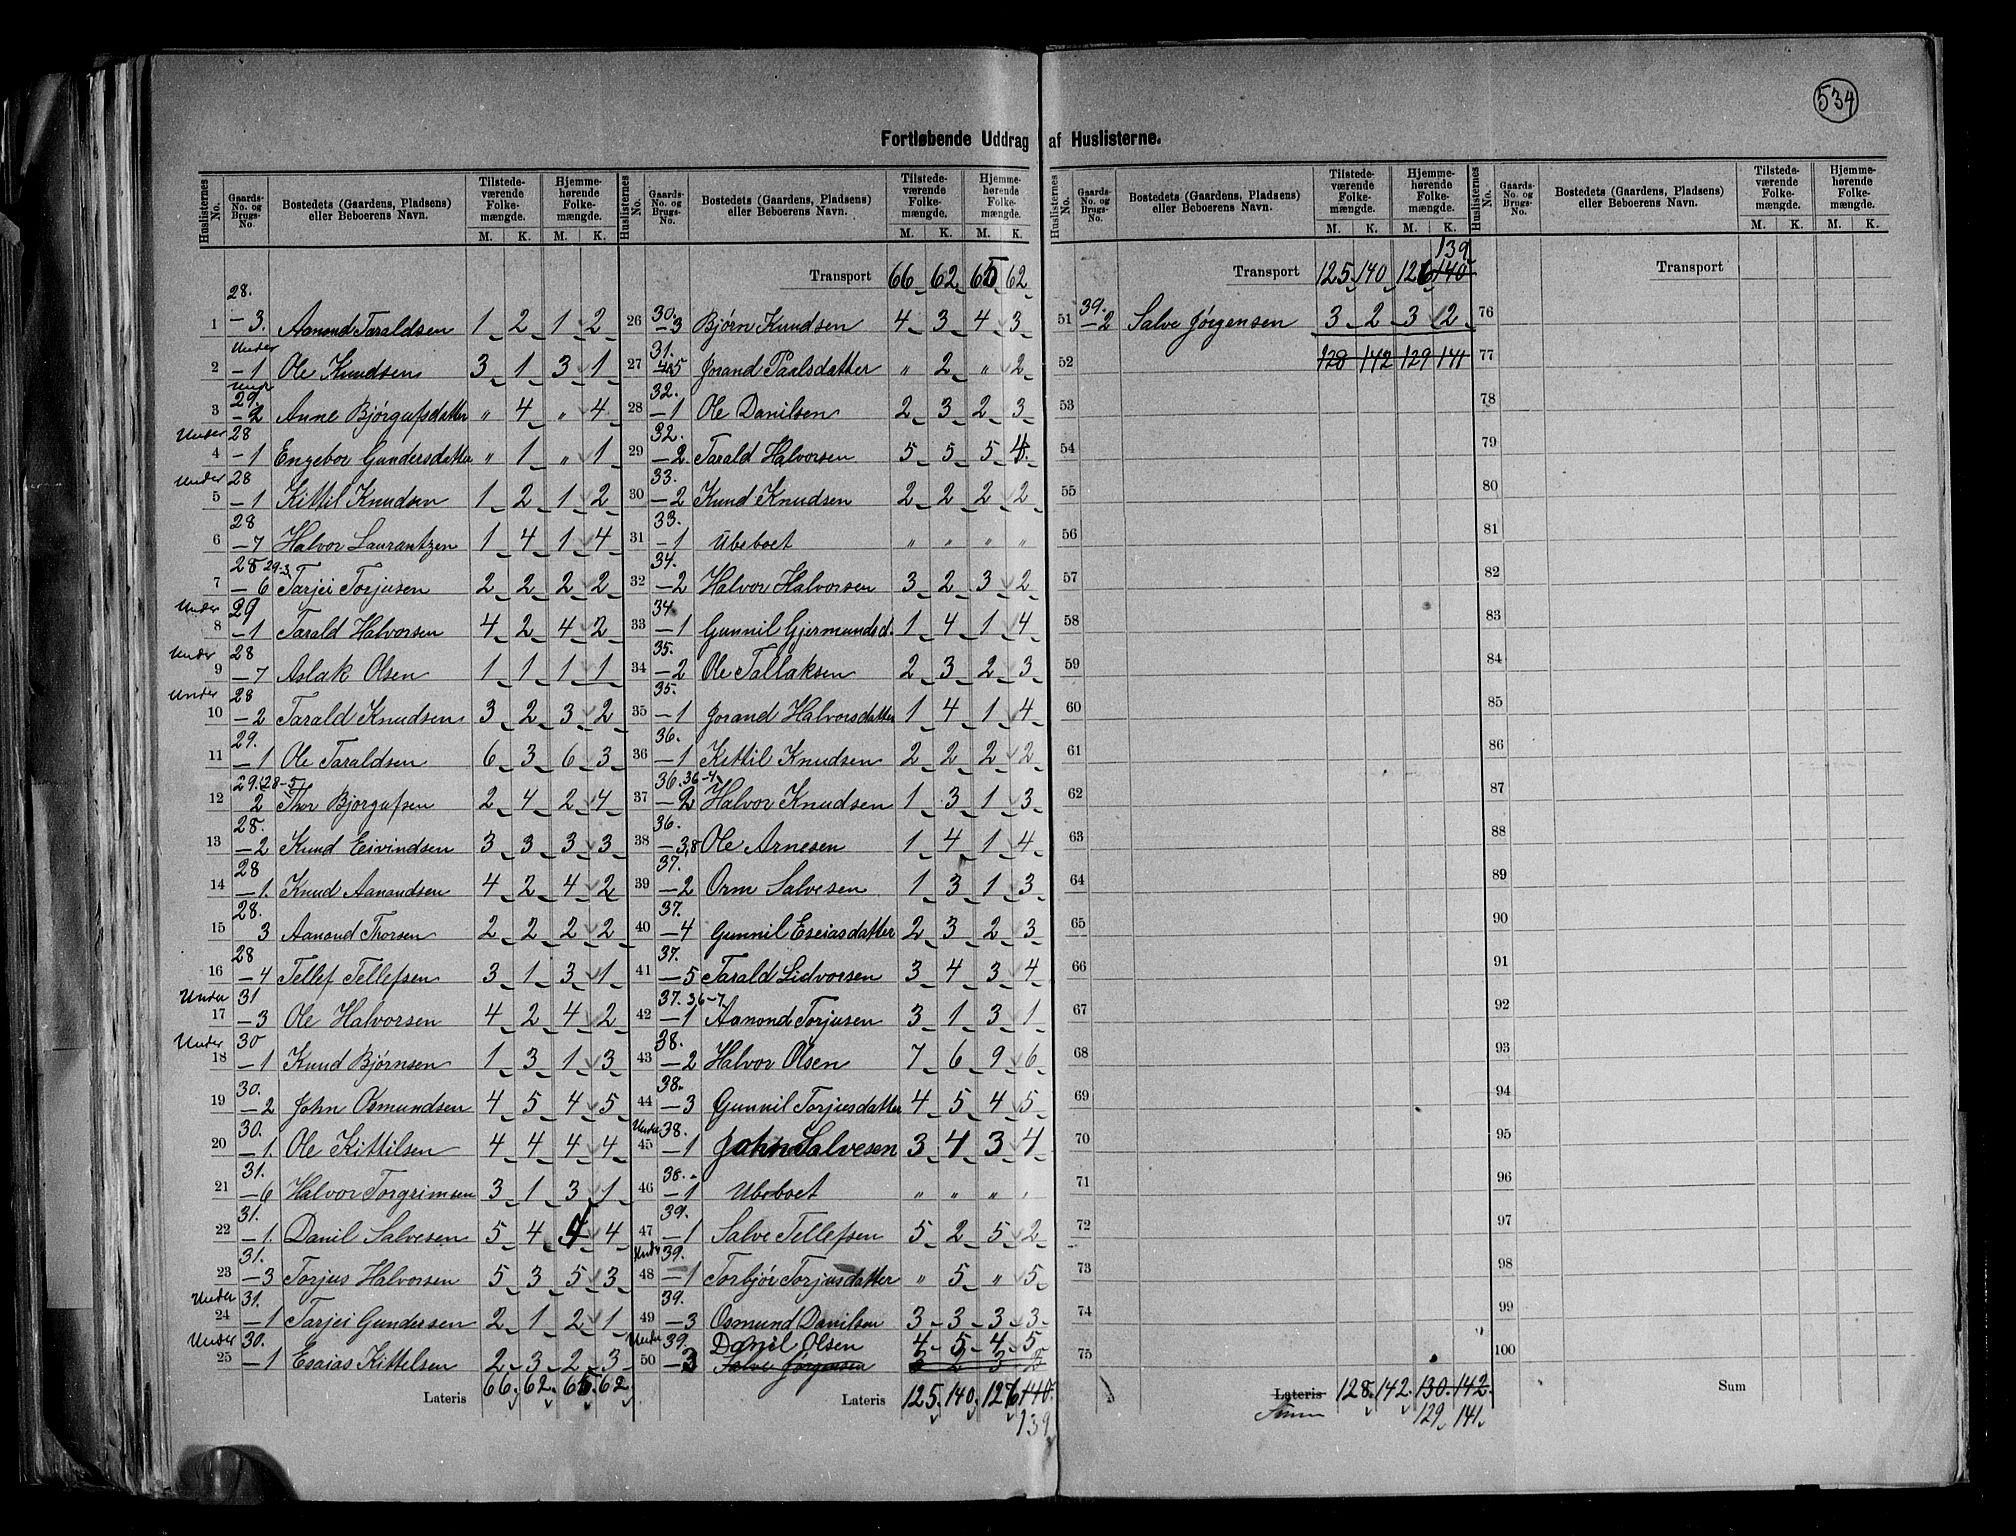 534
Fortløbende Uddrag af Huslisterne.
Huslisternes No. Gaards-No. og Brugs-No. Bostedets (Gaardens, Pladsens) eller Beboerens Navn. Tilstedeværende Folkemængde. Hjemmehørende Folkemængde. M. K. M. K.
1 28. — 3. Aanond Taraldsen 1 2 1 2
2 Under — 1 Ole Knudsen 3 1 3 1
3 Under 29. — 2 Anne Bjørgufsdatter " 4 " 4
4 Under 28 — 1 Engebor Gundersdatter " 1 " 1
5 Under 28 — 1 Kittil Knudsen 1 2 1 2
6 28 — 7 Halvor Laurantzen 1 4 1 4
7 28 29-3 — 6 Tarjei Torjusen 2 2 2 2
8 Under 29 — 1 Tarald Halvorsen 4 2 4 2
9 Under 28 — 7 Aslak Olsen 1 1 1 1
10 Under 28 — 2 Tarald Knudsen 3 2 3 2
11 29. — 1 Ole Taraldsen 6 3 6 3
12 29. 28-5 2 Thor Bjorgufsen 2 4 2 4
13 28. — 2 Knud Eivindsen 3 3 3 3
14 28 — 1. Knud Aanondsen 4 2 4 2
15 28. 3 Aanond Thorsen 2 2 2 2
16 28 — 4 Tellef Tellefsen 3 1 3 1
17 Under 31 — 3 Ole Halvorsen 4 2 4 2
18 Under 30 — 1 Knud Bjørnsen 1 3 1 3
19 30. — 2 John Osmundsen 4 5 4 5
20 30. — 1. Ole Kittilsen 4 4 4 4
21 31. — 6 Halvor Torgrimsen 3 1 3 1
22 31. — 1. Danil Salvesen 5 4 4 4
23 31. — 3 Torjus Halvorsen 5 3 5 3
24 Under 31. — 1 Tarjei Gundersen 2 1 2 1
25 Under 30. — 1 Esaias Kittelsen 2 3 2 3
Lateris 66 62 65 62
Huslisternes No. Gaards-No. og Brugs-No. Bostedets (Gaardens, Pladsens) eller Beboerens Navn. Tilstedeværende Folkemængde. Hjemmehørende Folkemængde. M. K. M. K.
Transport 66 62 65 62
26 30. — 3 Bjørn Knudsen 4 3 4 3
27 31. 5 Jorand Paalsdatter " 2 " 2
28 32. — 1 Ole Danilsen 2 3 2 3
29 32. — 2. Tarald Halvorsen 5 5 5 4
30 33. — 2 Knud Knudsen 2 2 2 2
31 33. — 1 Ubeboet " " " "
32 34. — 2 Halvor Halvorsen 3 2 3 2
33 34. — 1 Gunnil Gjermundsd. 1 4 1 4
34 35. — 2 Ole Tallaksen 2 3 2 3
35 35. — 1 Jorand Halvorsdatter 1 4 1 4
36 36. — 1 Kittil Knudsen 2 2 2 2
37 36. 36-4 — 2 Halvor Knudsen 1 3 1 3
38 36. — 3,8 Ole Arnesen 1 4 1 4
39 37. — 2 Orm Salvesen 1 3 1 3
40 37. — 4 Gunnil Eseiasdatter 2 3 2 3
41 37. — 5 Tarald Lidvorsen 3 4 3 4
42 37. 36-7 — 1 Aanond Torjusen 3 1 3 1
43 38. — 2 Halvor Olsen 7 6 9 6
44 38. — 3 Gunnil Torjusdatter 4 5 4 5
45 Under 38. — 1 John Salvesen 3 4 3 4
46 38. — 1 Ubeboet " " " "
47 39. — 1 Salve Tellefsen 5 2 5 2
48 Under 39. — 1 Torbjør Torjusdatter " 5 " 5
49 39. — 3 Osmund Danilsen 3 3 3 3
50 Under 39. — 3 Daniel Olsen 4 5 4 5
Salve Jørgensen 3 2 3 2
Lateris 125 140 126 140
139
Huslisternes No. Gaards-No. og Brugs-No. Bostedets (Gaardens, Pladsens) eller Beboerens Navn. Tilstedeværende Folkemængde. Hjemmehørende Folkemængde. M. K. M. K.
139
Transport 125 140 126 140
51 39. — 2 Salve Jørgensen 3 2 3 2
52 128 142 129 141
53
54
55
56
57
58
59
60
61
62
63
64
65
66
67
68
69
70
71
72
73
74
75
Lateris 128. 142. 130. 142.
Sum 129 141
Huslisternes No. Gaards-No. og Brugs-No. Bostedets (Gaardens, Pladsens) eller Beboerens Navn. Tilstedeværende Folkemængde. Hjemmehørende Folkemængde. M. K. M. K.
Transport
76
77
78
79
80
81
82
83
84
85
86
87
88
89
90
91
92
93
94
95
96
97
98
99
100
Sum